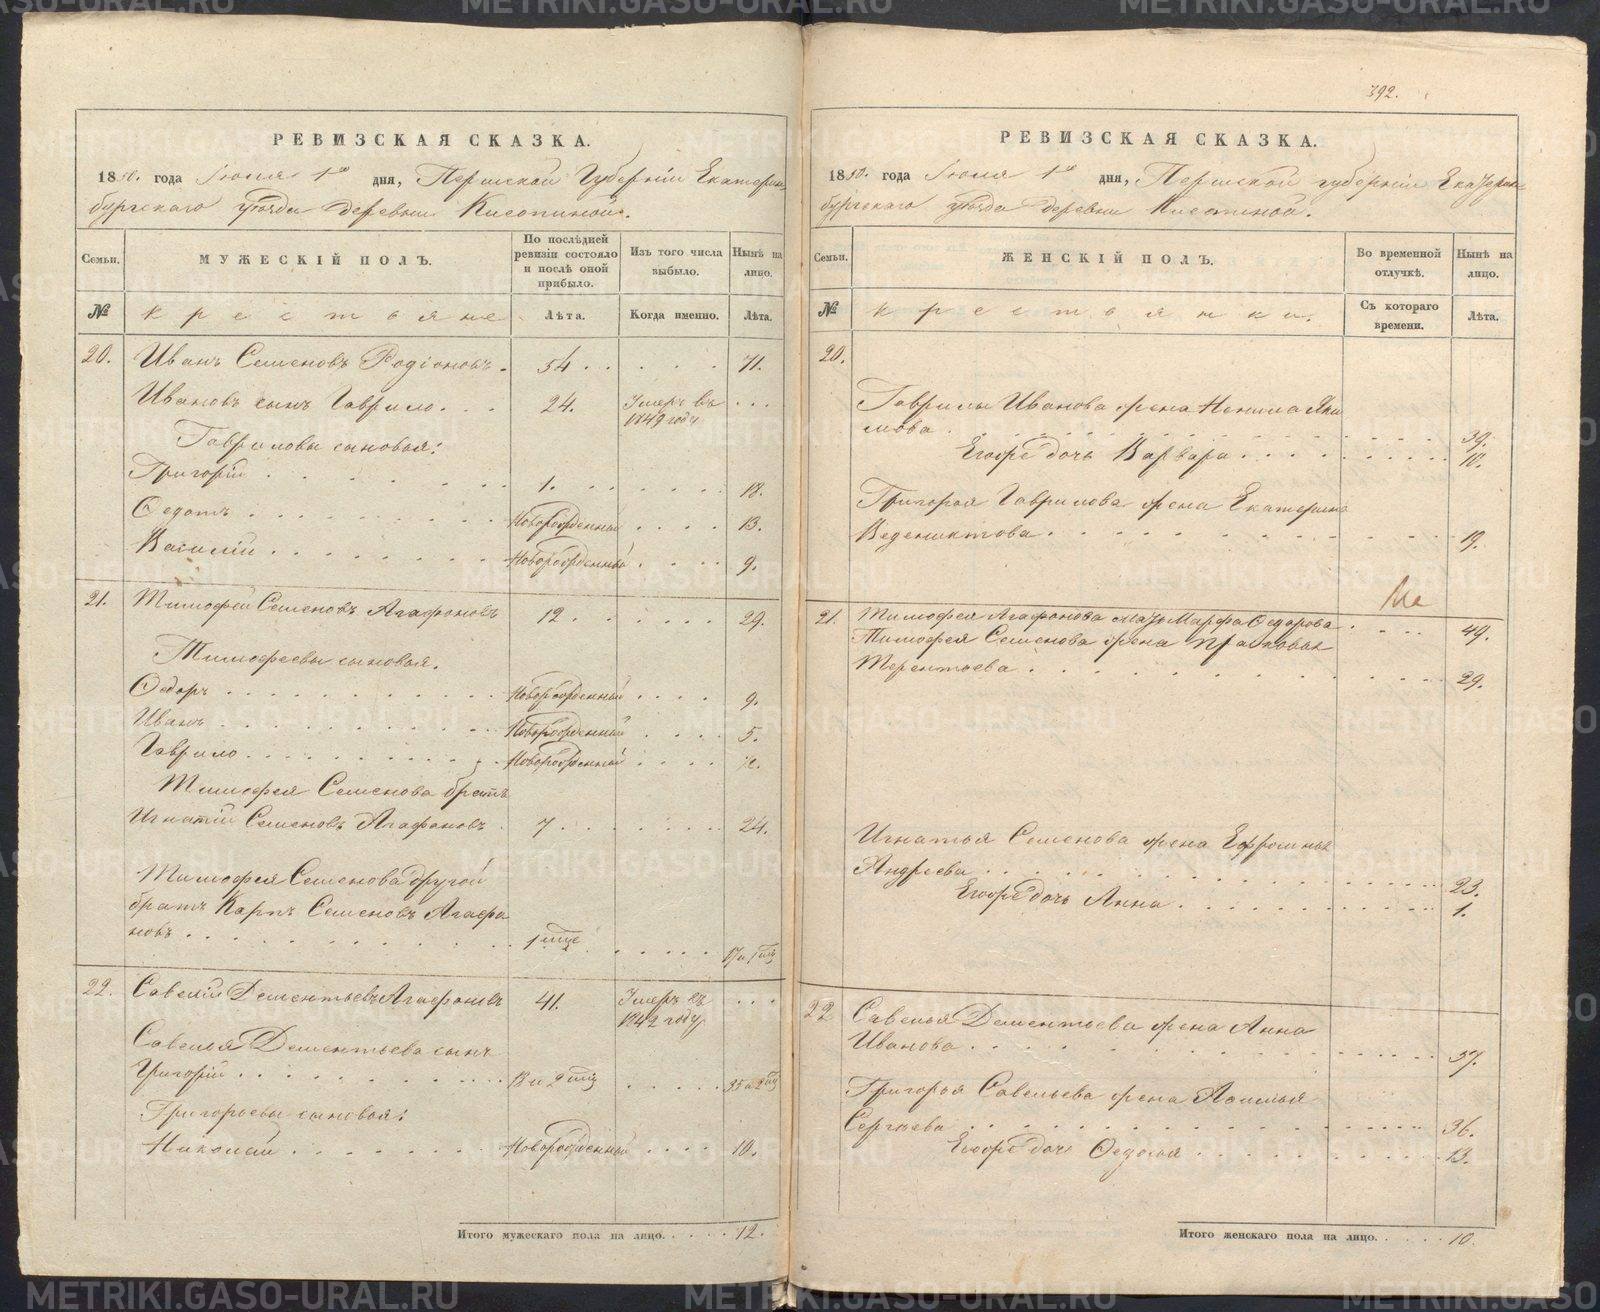 РЕВИЗСКАЯ СКАЗКА.
1850. года Іюня 1го дня, Пермской Губерніи Екатерин-
бургскаго уѣзда деревни Кисотиной.
Семьи.
МУЖЕСКІЙ ПОЛЪ.
По послѣдней ревизіи состояло и послѣ оной прибыло.
Изъ того числа выбыло.
Нынѣ на лицо.
№
крестьяне
Лѣта.
Когда именно.
Лѣта.
20. Иванъ Семеновъ Родіоновъ. 54 71.
Ивановъ сынъ Гаврило. 24. Умеръ въ 1849 году
Гавриловы сыновья:
Григорій 1. 18.
Ѳедотъ Новорожденный 13.
Василій Новорожденный 9.
21. Тимофей Семеновъ Агафоновъ 12 29.
Тимофеевы сыновья.
Ѳедоръ Новорожденный 9.
Иванъ Новорожденный 5.
Гаврило Новорожденный
Тимофея Семенова братъ
Игнатій Семеновъ Агафоновъ 7 24.
Тимофея Семенова другой
братъ Карпъ Семеновъ Агафо
новъ
22. Савелій Дементьевъ Агафоновъ 41. Умеръ въ 1842 году
Савелья Дементьева сынъ
Григорій
Григорьевы сыновья:
Николай Новорожденный 10.
Итого мужескаго пола на лицо. 12.
392.
РЕВИЗСКАЯ СКАЗКА.
1850. года Іюня 1го дня, Пермской губерніи Екатерин-
бургскаго уѣзда деревни Кисотиной.
Семьи.
ЖЕНСКІЙ ПОЛЪ.
Во временной отлучкѣ.
Нынѣ на лицо.
№
крестьянки.
Съ котораго времени.
Лѣта.
20.
Гаврилы Иванова жена Ненила Яки
мова. 39.
Егоже дочь Варвара 10.
Григорья Гаврилова жена Екатерина
Веденихтова 19.
21. Тимофея Агафонова мать Марфа Ѳедорова 49.
Тимофея Семенова жена Прасковья
Терентьева 29.
Игнатья Семенова жена Ефросинья
Андреева 23.
Егоже дочь Анна 1.
22 Савелья Дементьева жена Анна
Иванова 57.
Григорья Савельева жена Аксинья
Сергѣева 36.
Егоже дочь Ѳедосья 13.
Итого женскаго пола на лицо. 10.
METRIKI.GASO-URAL.RU